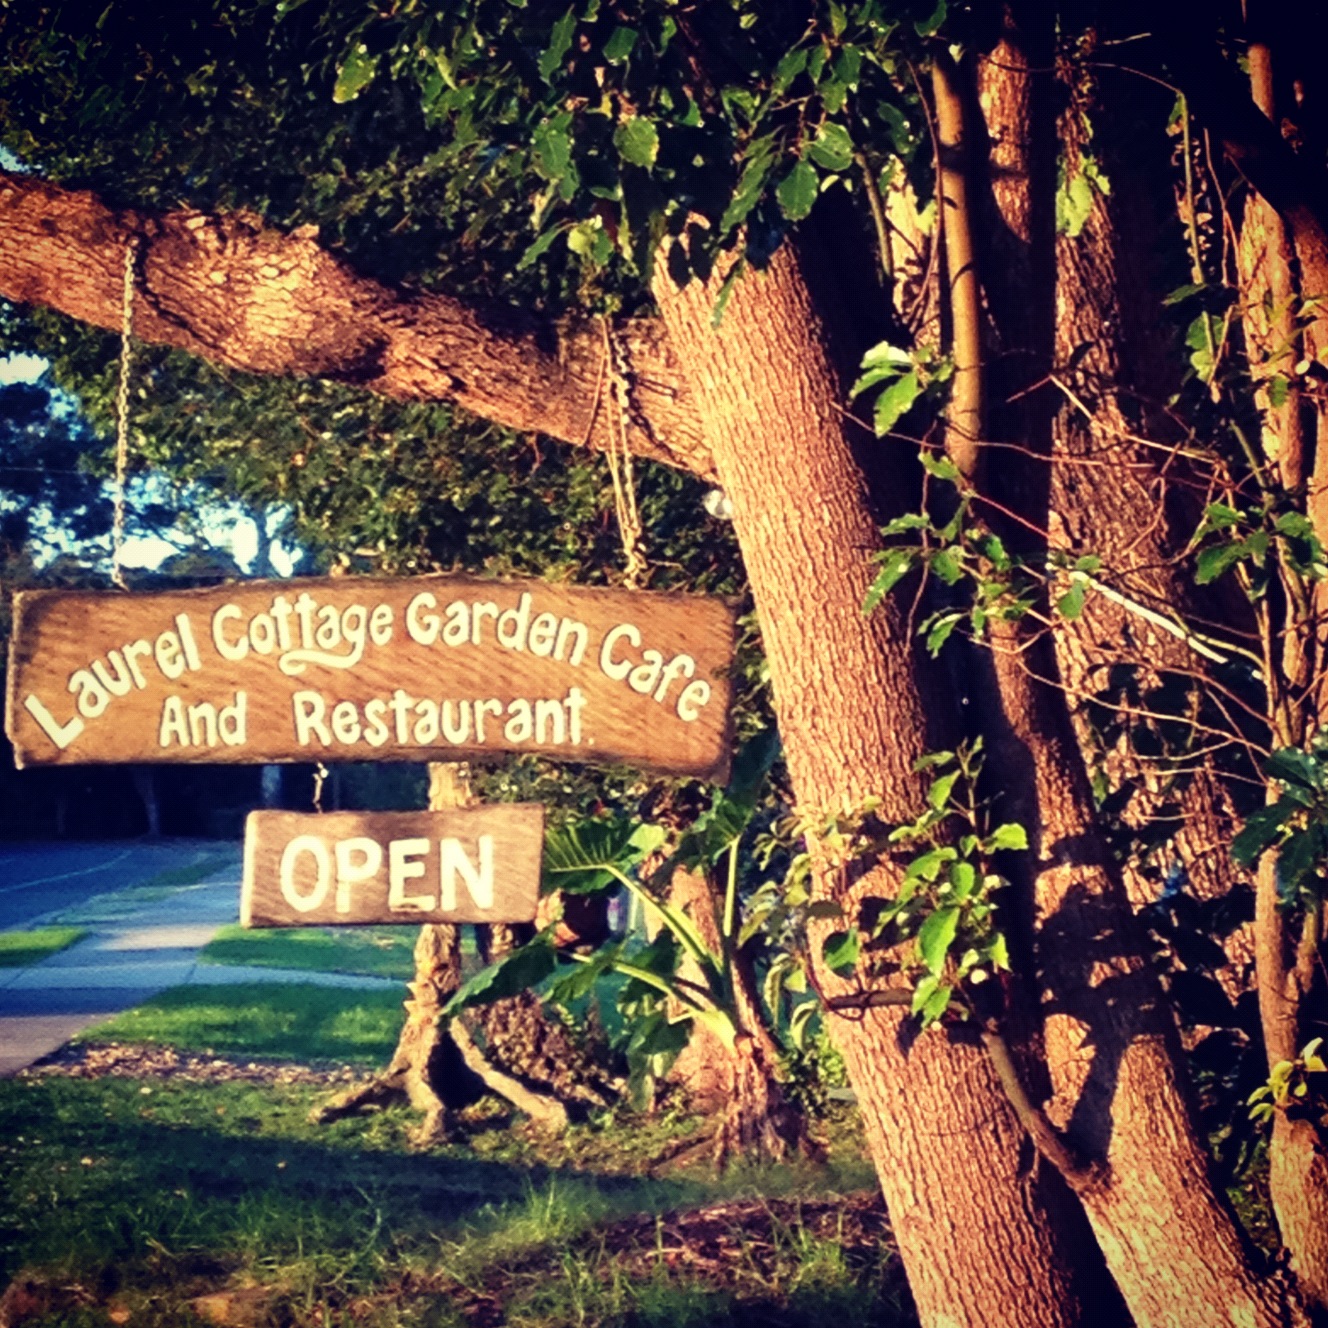 Laurel Cottage Garden Cafe
And Restaurant.
OPEN